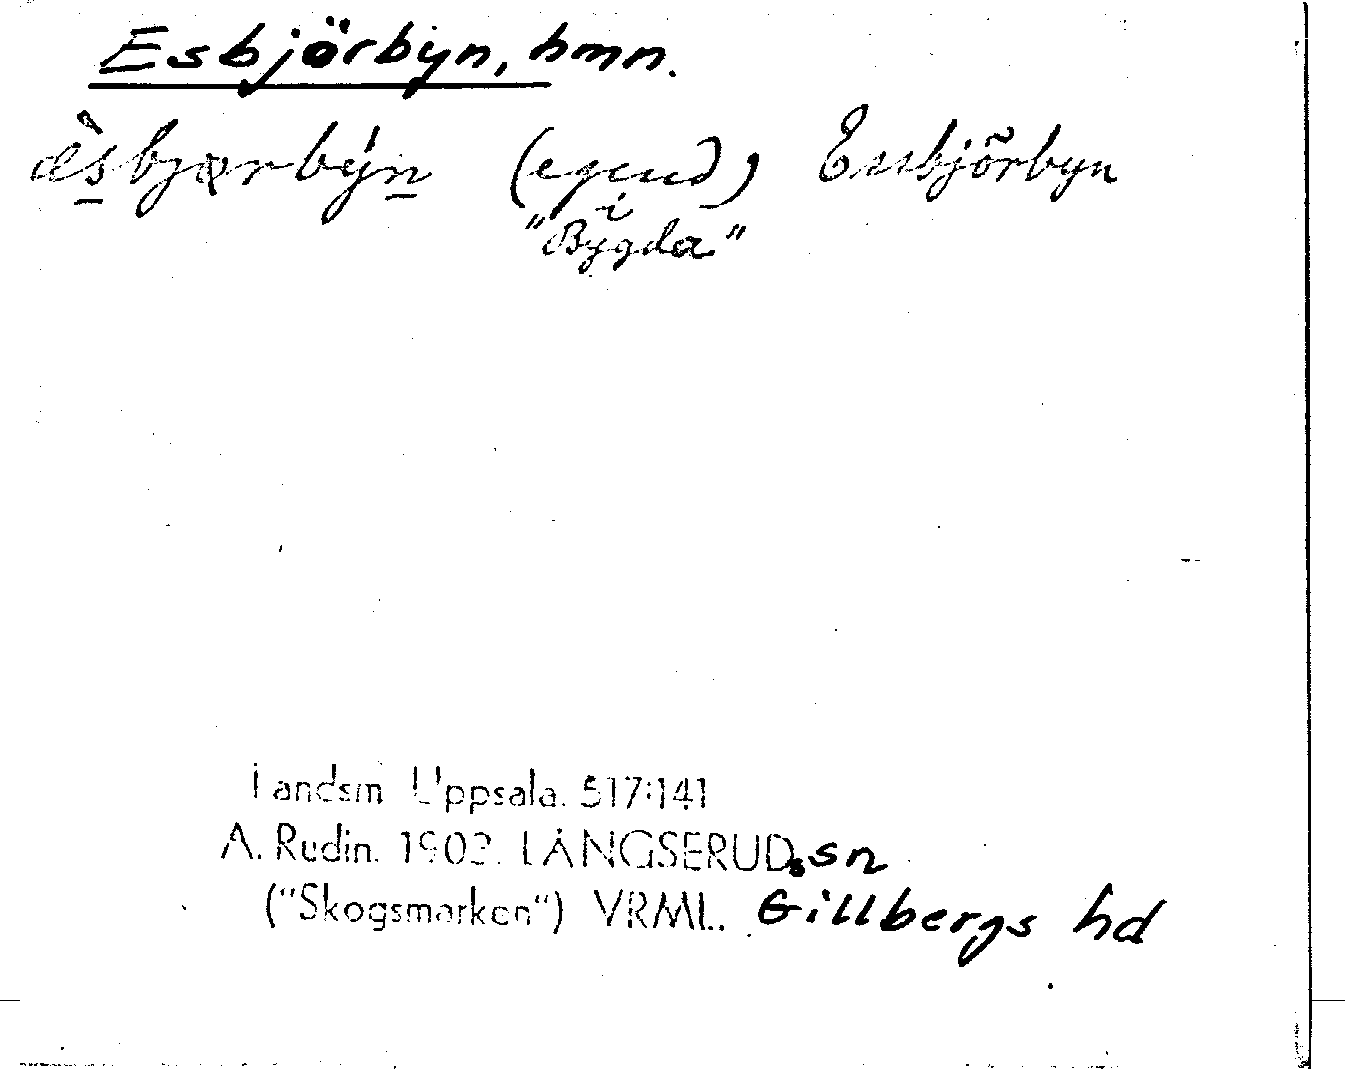 Esbjörbyn, hmn.
æ̀sbjærbýn (egend) Essbjörbyn
"i Bygda"
Landsm Uppsala. 517:141
A. Rudin. 1902. LÅNGSERUDs sn
("Skogsmarken") VRML. Gillbergs hd